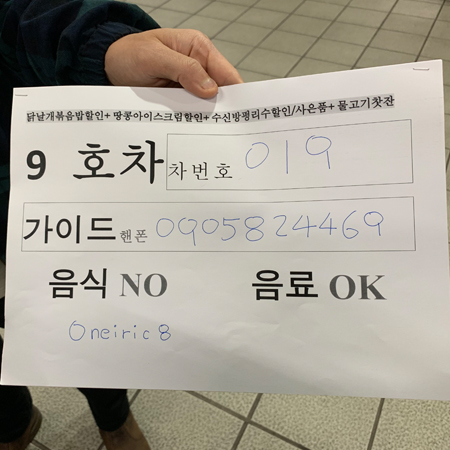 닭날개볶음밥할인+ 땅콩아이스크림할인+ 수신방펑리수할인/사은품+ 물고기찻잔
9 호차 차번호 019
가이드 핸폰 0905824469
음식 NO 음료 OK
Oneiric 8